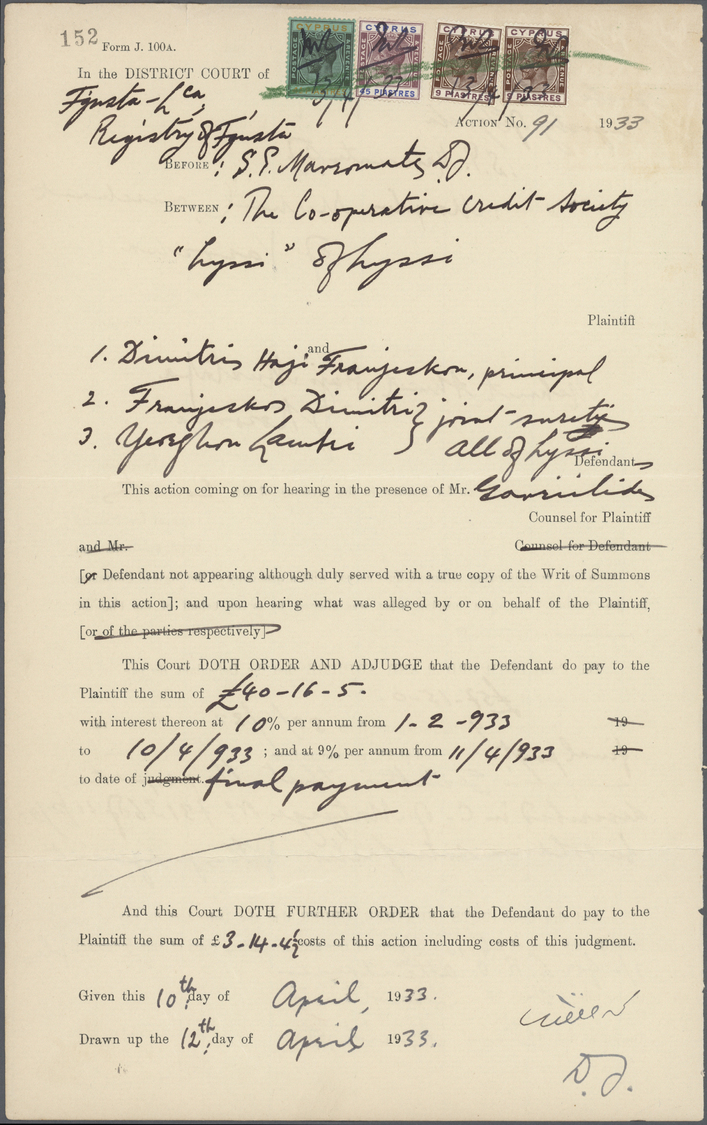 152 Form J. 100A.
CYPRUS CYPRUS CYPRUS CYPRUS
POSTAGE REVENUE POSTAGE REVENUE POSTAGE REVENUE POSTAGE REVENUE
45 PIASTRES 9 PIASTRES 9 PIASTRES
In the DISTRICT COURT of
Fgusta-Lca,
Registry of Fgusta
ACTION No. 91 1933
BEFORE: S.S. D.J.
BETWEEN: The Co-operative Credit Society
"Lyssi" of Lyssi
Plaintiff
and
1. Dimitris Haji Franjeskou, principal
2. Franjeskos Dimitri } joint-sureties
3. Yeorghou Lambi } All of Lyssi
Defendants
This action coming on for hearing in the presence of Mr. Gavrielides
Counsel for Plaintiff
and Mr. Counsel for Defendant
[or Defendant not appearing although duly served with a true copy of the Writ of Summons
in this action]; and upon hearing what was alleged by or on behalf of the Plaintiff,
[or of the parties respectively]
This Court DOTH ORDER AND ADJUDGE that the Defendant do pay to the
Plaintiff the sum of £40-16-5.
with interest thereon at 10% per annum from 1-2-933 19
to 10/4/933; and at 9% per annum from 11/4/933 19
to date of judgment. final payment
And this Court DOTH FURTHER ORDER that the Defendant do pay to the
Plaintiff the sum of £3-14-4½ costs of this action including costs of this judgment.
Given this 10th day of April, 1933.
Drawn up the 12th day of April 1933.
D.J.